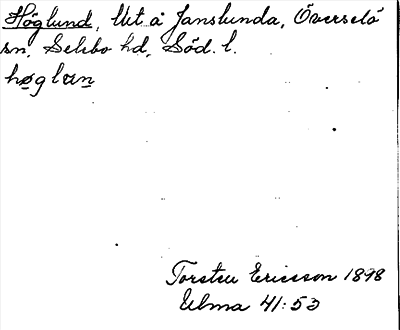 Höglund, lht å Janslunda, Överselö
sn. Selebo hd, Söd. l.
høglɯn
Torsten Ericsson 1898
Ulma 41:53